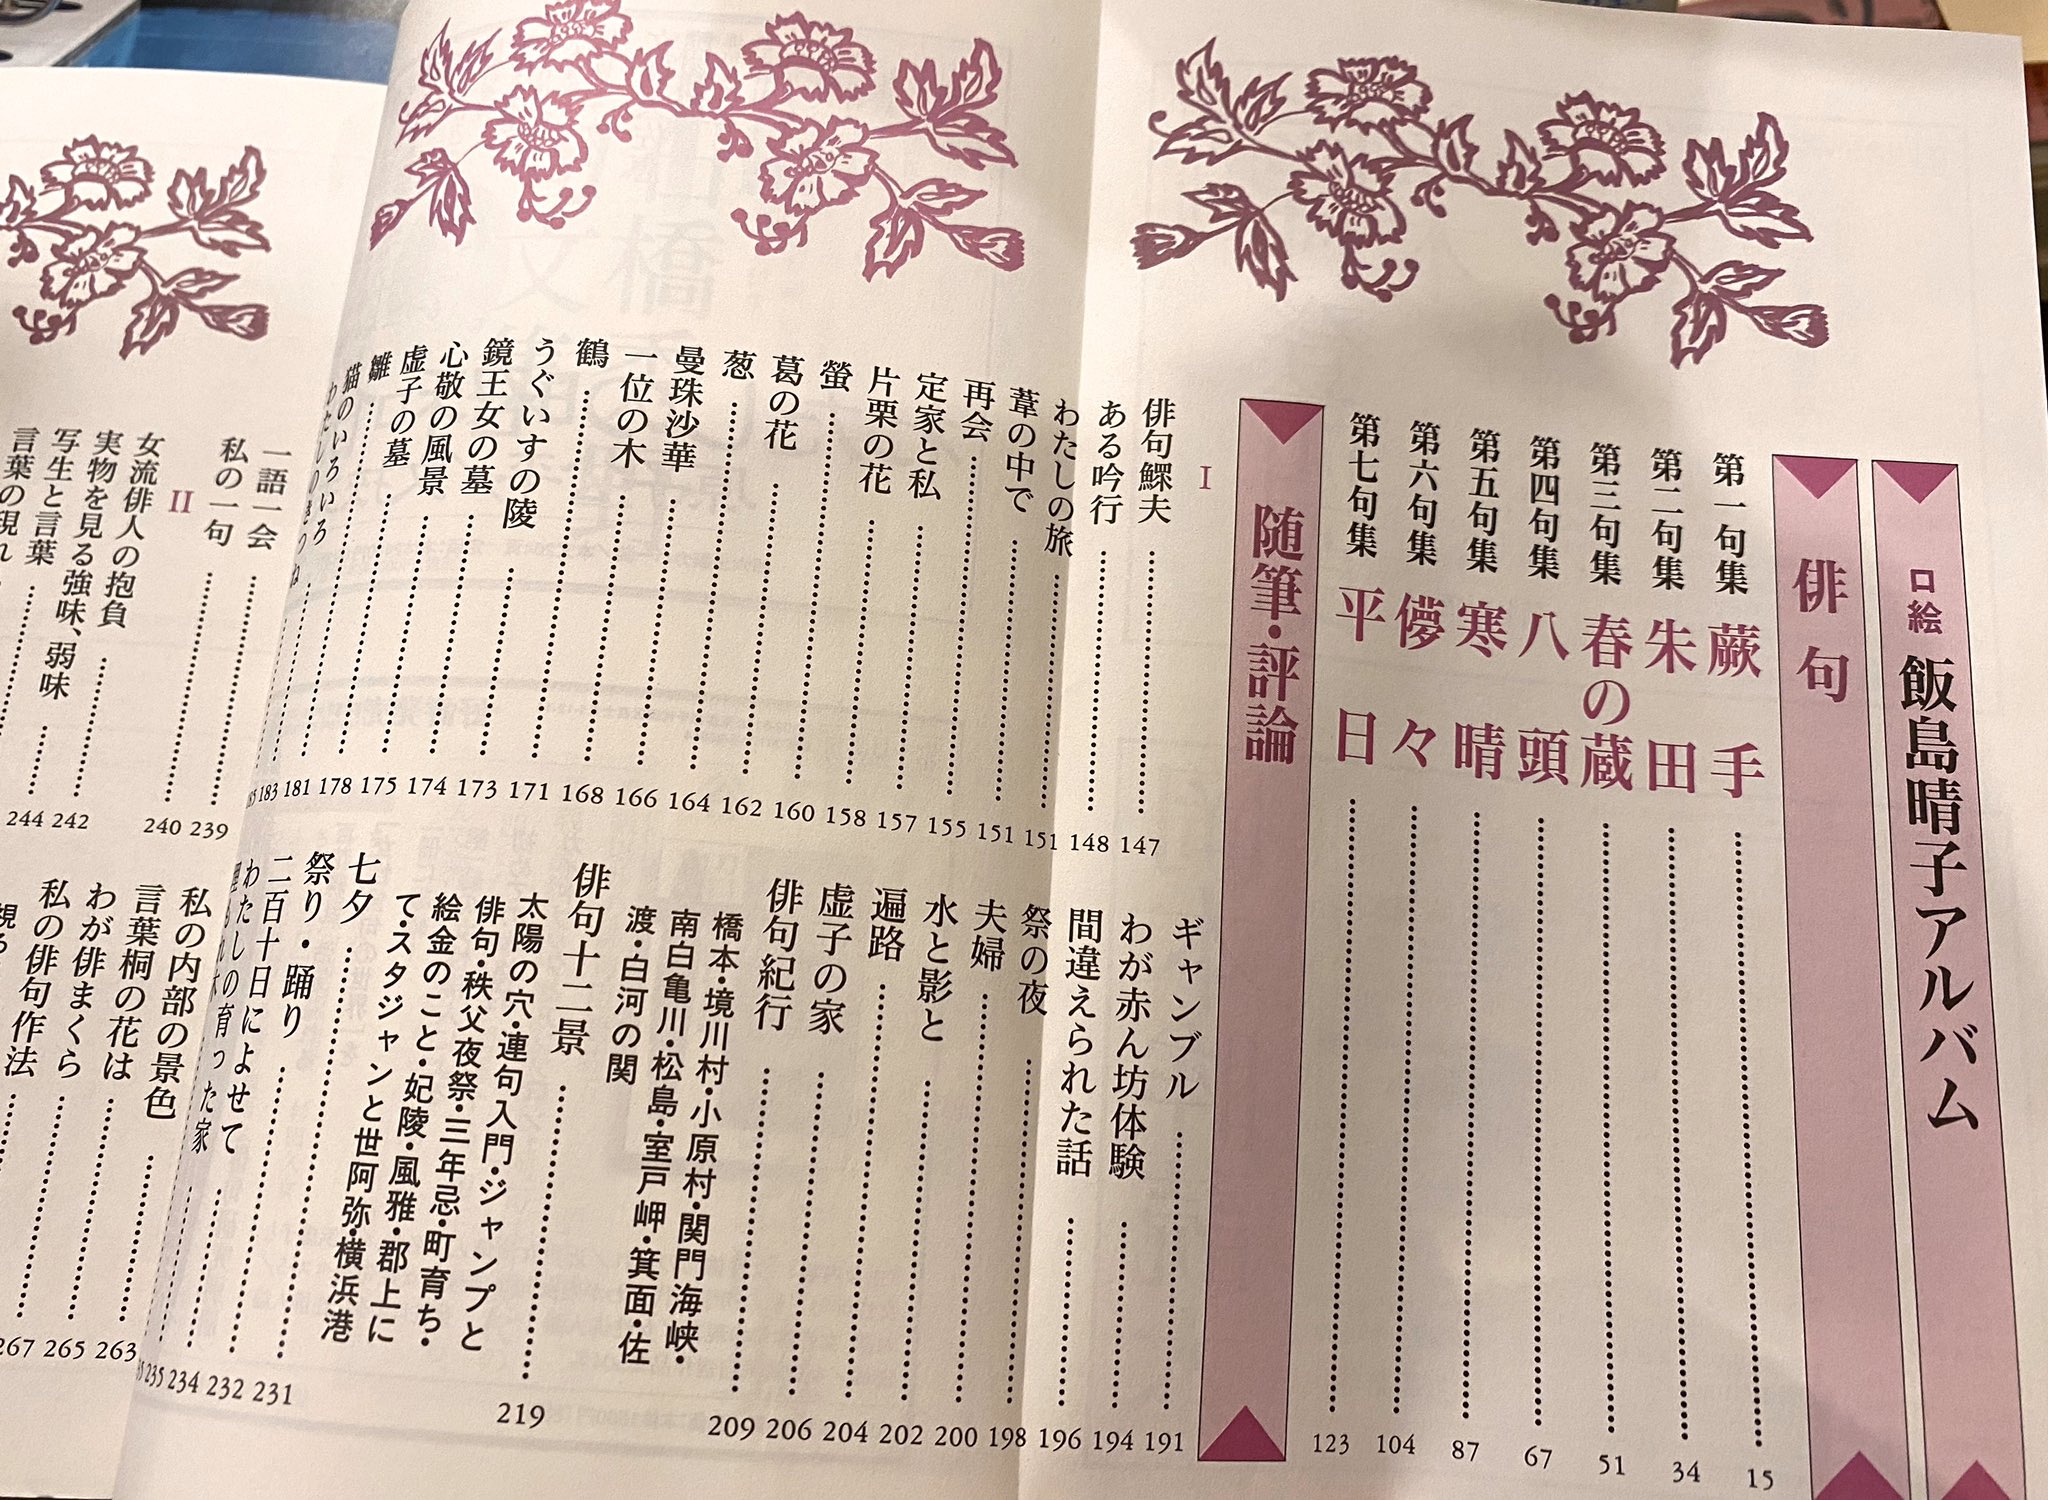 口絵 飯島晴子アルバム
俳句
第一句集 蕨手 15
第二句集 朱田 34
第三句集 春の蔵 51
第四句集 八頭 67
第五句集 寒晴 87
第六句集 儚々 104
第七句集 平日 123
随筆・評論
I
俳句鰥夫 147
ある吟行 148
わたしの旅 151
葦の中で 151
再会 155
定家と私 157
片栗の花 158
螢 160
葛の花 162
葱 164
曼珠沙華 166
一位の木 168
鶴 171
うぐいすの陵 173
鏡王女の墓 174
心敬の風景 175
虚子の墓 178
雛 181
猫のいろいろ 183
ギャンブル 191
わが赤ん坊体験 194
間違えられた話 196
祭の夜 198
夫婦 200
水と影と 202
遍路 204
虚子の家 206
俳句紀行 209
橋本・境川村・小原村・関門海峡・
南白亀川・松島・室戸岬・箕面・佐
渡・白河の関
俳句十二景 219
太陽の穴・連句入門・ジャンプと
俳句・秩父夜祭・三年忌・町育ち・
絵金のこと・妃陵・風雅・郡上に
て・スタジャンと世阿弥・横浜港
七夕 231
祭り・踊り 232
二百十日によせて 234
わたしの育った家 235
一語一会 239
私の一句 240
II
女流俳人の抱負
実物を見る強味、弱味 242
写生と言葉 244
言葉の現れ
私の内部の景色 263
言葉桐の花は 265
わが俳まくら 267
私の俳句作法